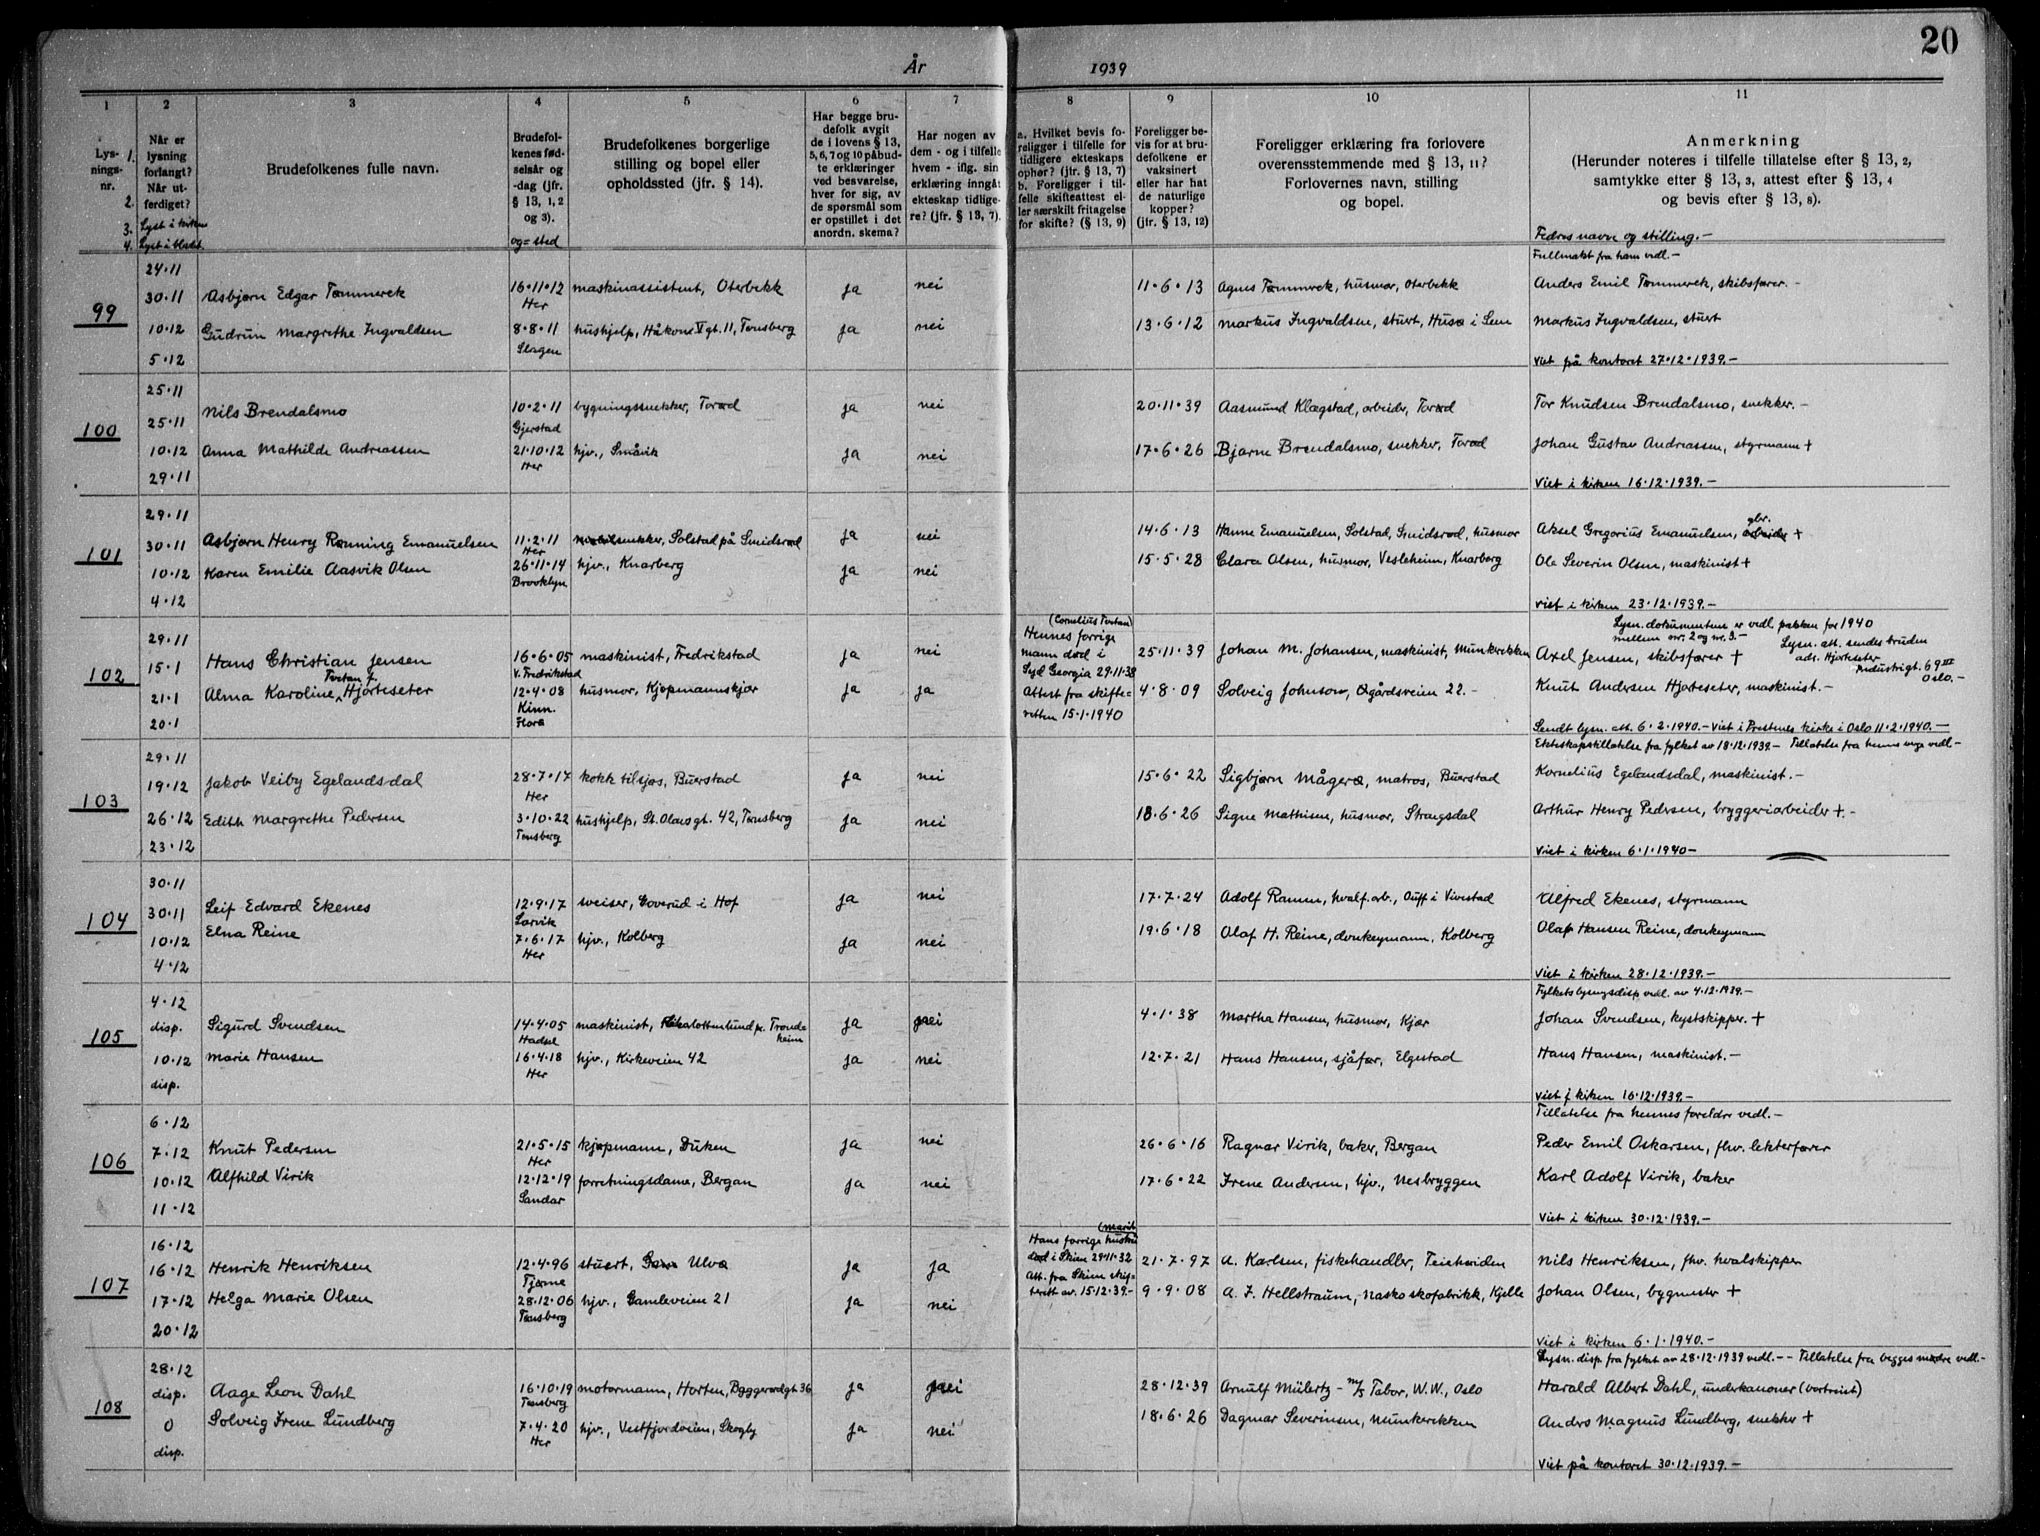 20
År 1939
1 2 3 4 5 6 7 8 9 10 11
Lys-
nings-
nr.
1.
2.
3.
4.
Når er
lysning
forlangt?
Når ut-
ferdiget?
Lyst i kirken
Lyst i bladet
Brudefolkenes fulle navn.
Brudefol-
kenes fød-
selsår og
-dag (jfr.
§ 13, 1, 2
og 3).
og=sted
Brudefolkenes borgerlige
stilling og bopel eller
opholdssted (jfr. § 14).
Har begge bru-
defolk avgit
de i lovens § 13,
5, 6, 7 og 10 påbud-
te erklæringer
ved besvarelse,
hver for sig, av
de spørsmål som
er opstillet i det
anordn. skema?
Har nogen av
dem - og i tilfelle
hvem - iflg. sin
erklæring inngåt
ekteskap tidlige-
re? (jfr. § 13, 7).
a. Hvilket bevis fo-
religger i tilfelle for
tidligere ekteskaps
ophør? (jfr. § 13, 7)
b. Foreligger i til-
felle skifteattest el-
ler særskilt fritagelse
for skifte? (§ 13, 9)
Foreligger be-
vis for at bru-
defolkene er
vaksinert
eller har hat
de naturlige
kopper?
(jfr. § 13, 12)
Foreligger erklæring fra forlovere
overensstemmende med § 13, 11?
Forlovernes navn, stilling
og bopel.
Anmerkning
(Herunder noteres i tilfelle tillatelse efter § 13, 2,
samtykke efter § 13, 3, attest efter § 13, 4
og bevis efter § 13, 8).
Fedres navn og stilling.-
99
24·11
30·11
10·12
5·12
Fullmakt fra ham vedl.-
Asbjørn Edgar Tømmerek 16·11·12 maskinassistent, Oterbekk ja nei 11·6·13 Agnes Tømmerek, husmor, Oterbekk Anders Emil Tømmerek, skibsfører.-
Her
Gudrun Margrethe Ingvaldsen 8·8·11 hushjelp, Håkon V gt. 11, Tønsberg ja nei 13·6·12 Markus Ingvaldsen, stuert, Husø i Sem Markus Ingvaldsen, stuert
Slagen
Viet på kontoret 27·12·1939.-
100
25·11
25·11
10·12
29·11
Nils Brendalsmo 10·2·11 bygningssnekker, Torød ja nei 20·11·39 Aasmund Klægstad, arbeider, Torød Tor Knudsen Brendalsmo, snekker.-
Gjerstad
Anna Mathilde Andreassen 21·10·12 hjv., Småvik ja nei 17·6·26 Bjarne Brendalsmo, snekker, Torød Johan Gustav Andreassen, styrmann +
Her
Viet i kirken 16·12·1939.-
101
29·11
30·11
10·12
4·12
Asbjørn Henry Rønning Emanuelsen 11·2·11 snekker, Solstad på Smidsrød ja nei 14·6·13 Hanne Emanuelsen, Solstad, Smidsrød, husmor Aksel Gregorius Emanuelsen, gbr. arbeider +
Her
Karen Emilie Aasvik Olsen 26·11·14 hjv., Knarberg ja nei 15·5·28 Clara Olsen, husmor, Vesleheim, Knarberg Ole Severin Olsen, maskinist +
Brooklyn
Viet i kirken 23·12·1939.-
102
29·11
15·1
21·1
20·1
Lysn. dokumentene er vedl. pakken for 1940
mellem nr. 2 og nr. 3.-
Lysn. att. sendes bruden
adr. Hjorteseter
Industrigt. 69 III
Oslo.-
Hans Christian Jensen 16·6·05 maskinist, Fredrikstad ja nei 25·11·39 Johan M. Johansen, maskinist, Munkerekken Axel Jensen, skibsfører +
V. Fredrikstad
Alma Karoline Tvetan f. Hjorteseter 12·4·08 husmor, Kjøpmannskjær ja ja 4·8·09 Solveig Johnson, Øgårdsveien 22.- Knut Andersen Hjorteseter, maskinist.-
Kinn.
Florø
(Cornelius Tvetan)
Hennes forrige
mann død i
Syd Georgia 29·11·38
Attest fra skifte=
retten 15·1·1940
Sendt lysn. att. 6·2·1940.- Viet i Prestenes kirke i Oslo 11·2·1940.-
103
29·11
19·12
26·12
23·12
Ekteskapstillatelse fra fylket av 18·12·1939.- Tillatelse fra hennes verge vedl-
Jakob Veiby Egelandsdal 28·7·17 kokk tilsjøs, Buerstad ja nei 15·6·22 Sigbjørn Mågerø, matros, Buerstad Kornelius Egelandsdal, maskinist.-
Her
Edith Margrethe Pedersen 3·10·22 hushjelp, St. Olavs gt. 42, Tønsberg ja nei 18·6·26 Signe Mathisen, husmor, Strengsdal Arthur Henry Pedersen, bryggeriarbeider +.-
Tønsberg
Viet i kirken 6·1·1940-
104
30·11
30·11
10·12
4·12
Leif Edvard Ekenes 12·9·17 sveiser, Goverud i Hof ja nei 17·7·24 Adolf Ramm, hvalf. arb., Duff i Vivestad Alfred Ekenes, styrmann
Larvik
Elna Reine 7·6·17 hjv., Kolberg ja nei 19·6·18 Olaf H. Reine, donkeymann, Kolberg Olaf Hansen Reine, donkeymann
Her
Viet i kirken 28·12·1939.-
105
4·12
disp.
10·12
disp.
Fylkets lysningsdisp. vedl. av 4·12·1939.-
Sigurd Svendsen 14·4·05 maskinist, Charlottenlund pr. Trond=heim ja nei 4·1·38 Martha Hansen, husmor, Kjær Johan Svendsen, kystskipper. +
Hadsel
Marie Hansen 16·4·18 hjv., Kirkeveien 42 ja nei 12·7·21 Hans Hansen, sjåfør, Elgestad Hans Hansen, maskinist.-
Her
Viet i kirken 16·12·1939.-
106
6·12
7·12
10·12
11·12
Tillatelse fra hennes foreldre vedl.-
Knut Pedersen 21·5·15 kjøpmann, Duken ja nei 26·6·16 Ragnar Virik, baker, Bergan Peder Emil Oskarsen, fhv. lekterfører
Her
Alfhild Virik 12·12·19 forretningsdame, Bergan ja nei 17·6·22 Irene Andersen, hjv., Nesbryggen Karl Adolf Virik, baker
Sandar
Viet i kirken 30·12·1939.-
107
16·12
16·12
17·12
20·12
Henrik Henriksen 12·4·96 stuert, Ulvø ja ja 21·7·97 A. Karlsen, fiskehandler, Teiehøiden Nils Henriksen, fhv. hvalskipper
Tjøme
Helga Marie Olsen 28·12·06 hjv., Gamleveien 21 ja nei 9·9·08 A. F. Hellstraum, Nasko skofabrikk, Kjelle Johan Olsen, bygmester +
Tønsberg
(Marit
Hans forrige hustru
død i Skien 29·11·32
Att. fra Skien skif=
terett av. 15·12·39.-
Viet i kirken 6·1·1940.-
108
28·12
disp.
0
disp.
Lysn. disp. fra fylket av 28·12·1939 vedl.-- Tillatelse fra begges mødre vedl.-
Aage Leon Dahl 16·10·19 motormann, Horten, Byggerødgt 36 ja nei 28·12·39 Arnulf Mülertz - m/s Tabor, W.W., Oslo Harald Albert Dahl, underkanoner (bortreist)
Tønsberg
Solveig Irene Lundberg 7·4·20 hjv., Vestfjordveien, Skogly ja nei 18·6·26 Dagmar Severinsen, Munkerekken Anders Magnus Lundberg, snekker +
Her
Viet på kontoret 30·12·1939.-